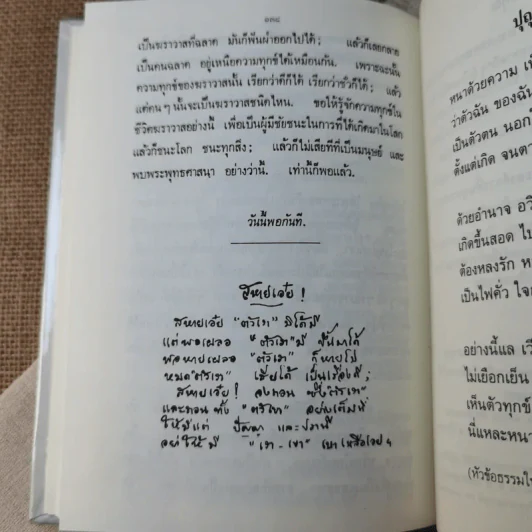 ๑๓๘
เป็นฆราวาสที่ฉลาด มันก็พ้นผ่าออกไปได้; แล้วก็เลยกลาย
เป็นคนฉลาด อยู่เหนือความทุกข์ได้เหมือนกัน. เพราะฉะนั้น
ความทุกข์ของฆราวาสนั้น เรียกว่าดีก็ได้ เรียกว่าชั่วก็ได้; แล้ว
แต่คนๆ นั้นจะเป็นฆราวาสชนิดไหน. ขอให้รู้จักความทุกข์ใน
ชีวิตฆราวาสอย่างนี้ เพื่อเป็นผู้มีชัยชนะในการที่ได้เกิดมาในโลก
แล้วก็ชนะโลก ชนะทุกสิ่ง; แล้วก็ไม่เสียทีที่เป็นมนุษย์ และ
พบพระพุทธศาสนา อย่างว่านี้. เท่านี้ก็พอแล้ว.
วันนี้พอกันที.
สหายเอ๋ย !
สหายเอ๋ย "ตัวเรา" มิได้มี
แต่พอเผลอ "ตัวเรา" มี ขึ้นมาได้
พอหายเผลอ "ตัวเรา" ก็หายไป
หมด "ตัวเรา" เสียได้ เป็นเรื่องดี;
สหายเอ๋ย ! จงถอน ซึ่ง "ตัวเรา"
และถอนทั้ง "ตัวเขา" อย่างเต็มที่
ให้มีแต่ ปัญญา และปรานี
อย่าให้มี "เรา - เขา" เบาเหลือเอย ฯ
หนาด้วยความ
ว่าตัวฉัน ของฉัน
เป็นตัวตน นอก
ตั้งแต่เกิด จนตา
ด้วยอำนาจ อวิ
เกิดขึ้นสอด ไป
ต้องหลงรัก ห
เป็นไฟคั่ว ใจ
อย่างนี้แล เวี
ไม่เยือกเย็น
เห็นตัวทุกข์
นี่แหละหนา
(หัวข้อธรรมใ